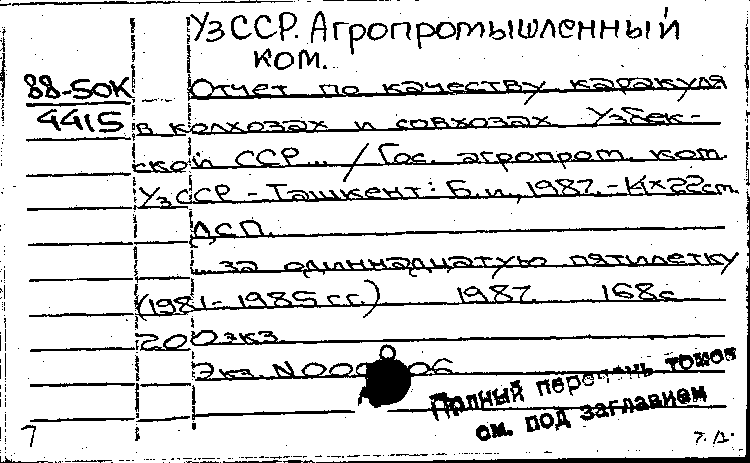 УзССР. Агропромышленный
ком.
88-50К
4415
Отчет по качеству каракуля
в колхозах и совхозах Узбек-
ской ССР... / Гос. агропром. ком.
УзССР - Ташкент: Б.и., 1987. - 14×22 см.
ДСП.
... за одиннадцатую пятилетку
(1981-1985 гг.) 1987. 168с
200 экз.
Экз. N
Полный перечень томов
см. под заглавием
7